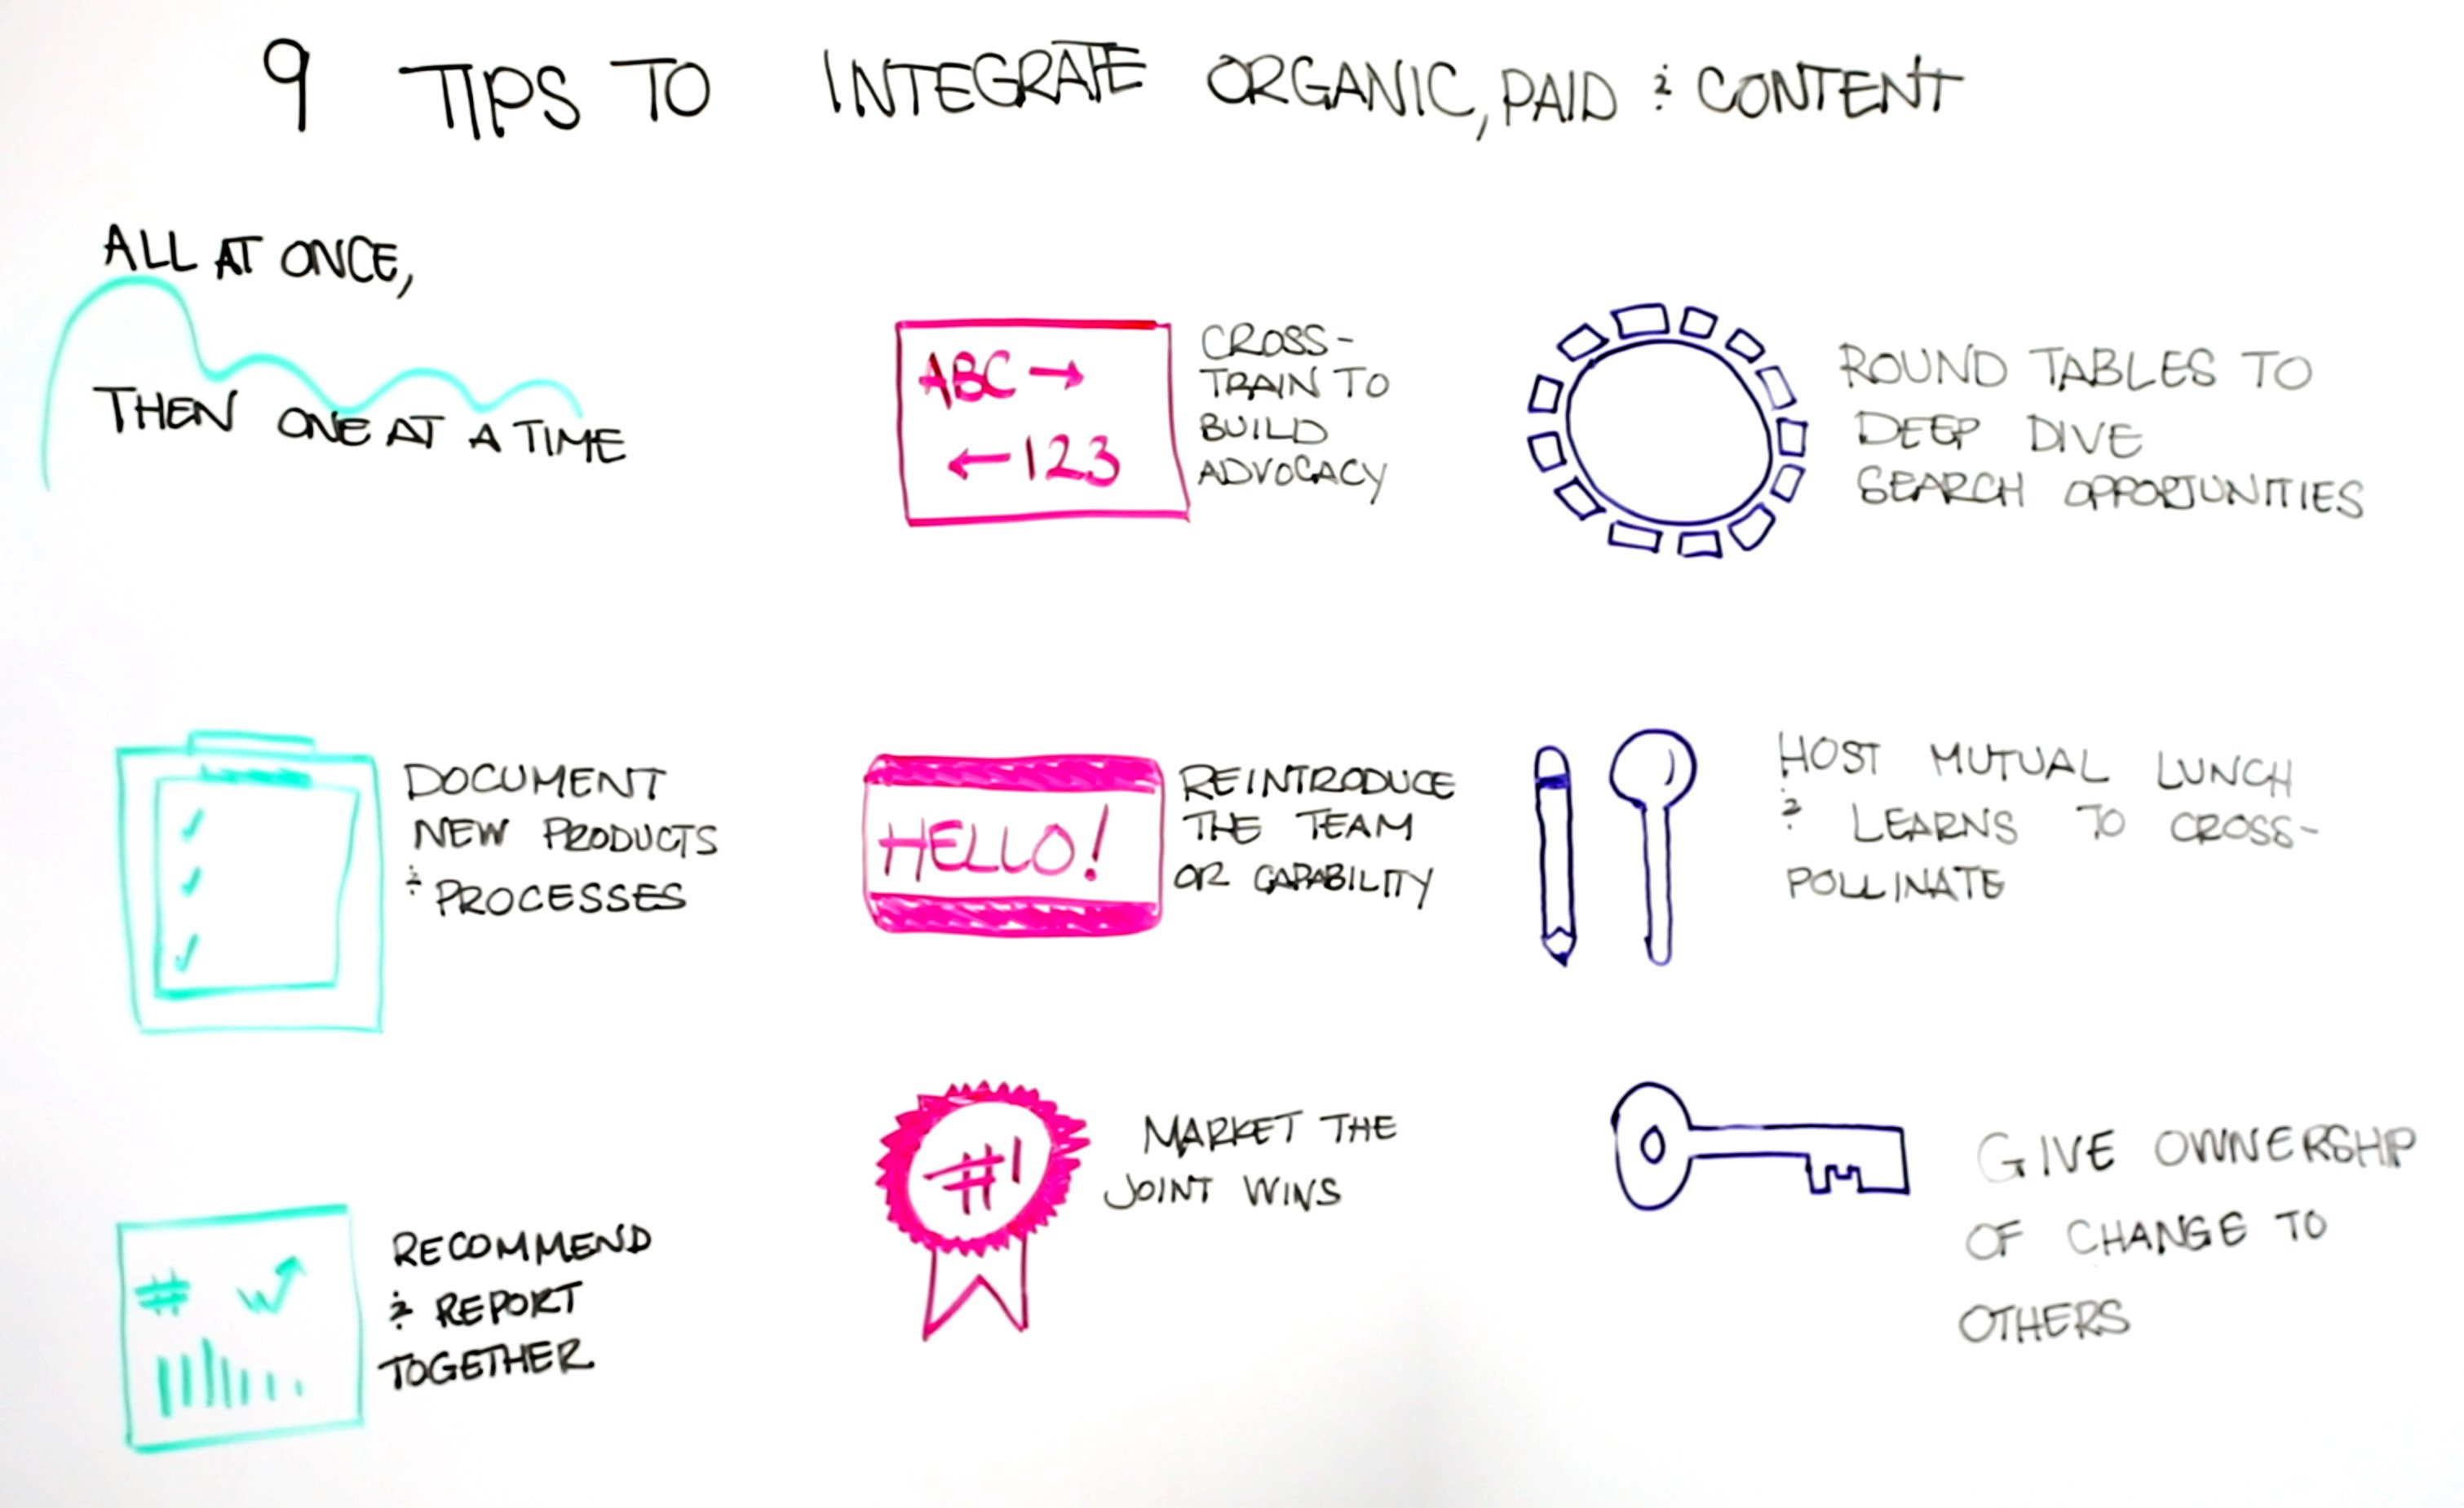 9 TIPS TO INTEGRATE ORGANIC, PAID & CONTENT
ALL AT ONCE,
THEN ONE AT A TIME
ABC →
← 123
CROSS-
TRAIN TO
BUILD
ADVOCACY
ROUND TABLES TO
DEEP DIVE
SEARCH OPPORTUNITIES
DOCUMENT
NEW PRODUCTS
& PROCESSES
HELLO!
REINTRODUCE
THE TEAM
OR CAPABILITY
HOST MUTUAL LUNCH
& LEARNS TO CROSS-
POLLINATE
#
RECOMMEND
& REPORT
TOGETHER
#1
MARKET THE
JOINT WINS
GIVE OWNERSHIP
OF CHANGE TO
OTHERS